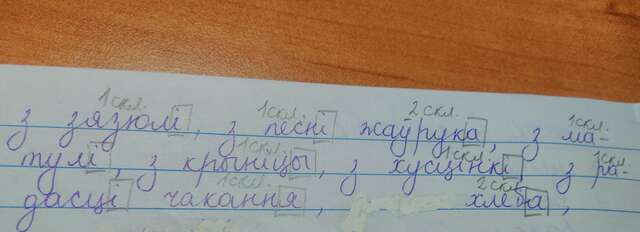 1 скл. 1 скл. 2 скл. 1 скл.
з зязюлі, з песні жаўрука, з ма-
1 скл. 1 скл. 1 скл.
тулі, з крыніцы, з хусцінкі з ра-
1 скл. 2 скл.
дасці чакання, хлеба,